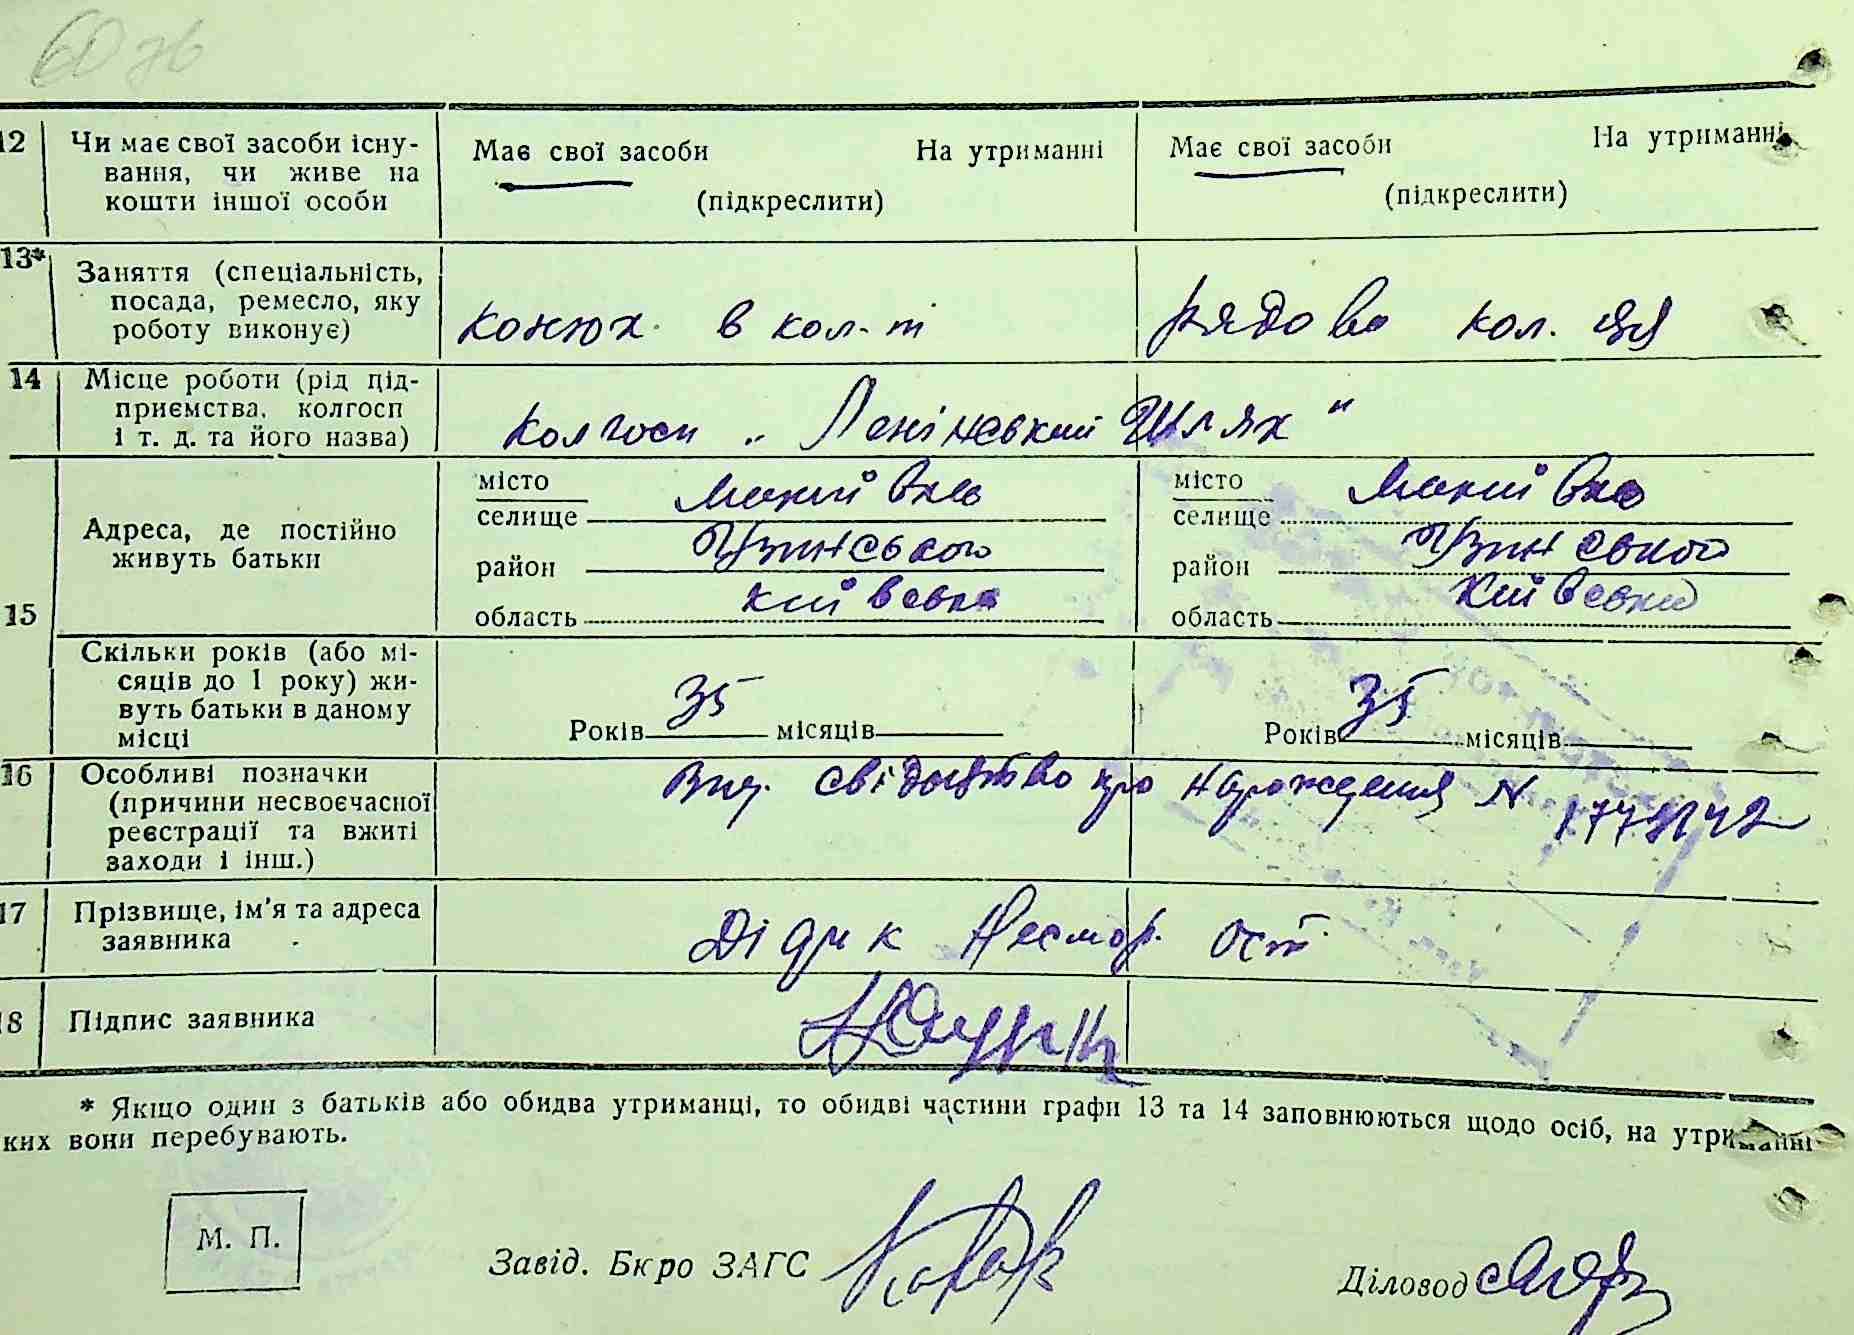 12 Чи має свої засоби існу-
вання, чи живе на
кошти іншої особи
Має свої засоби На утриманні
(підкреслити)
Має свої засоби На утриманні
(підкреслити)
13* Заняття (спеціальність,
посада, ремесло, яку
роботу виконує)
конюх в кол-т
рядова кол.
14 Місце роботи (рід під-
приємства, колгосп
і т. д. та його назва)
колгосп „Ленінський Шлях"
15 Адреса, де постійно
живуть батьки
місто
селище Макиївка
район Узинського
область Київська
місто
селище Макиївка
район Узинського
область Київська
Скільки років (або мі-
сяців до 1 року) жи-
вуть батьки в даному
місці
Років 35 місяців
Років 35 місяців
16 Особливі позначки
(причини несвоєчасної
реєстрації та вжиті
заходи і інш.)
свідоцтво про народження N
17 Прізвище, ім'я та адреса
заявника
Дідик Нестор Ост.
18 Підпис заявника
* Якщо один з батьків або обидва утриманці, то обидві частини графи 13 та 14 заповнюються щодо осіб, на утриманні
ких вони перебувають.
М. П.
Завід. Бюро ЗАГС
Діловод